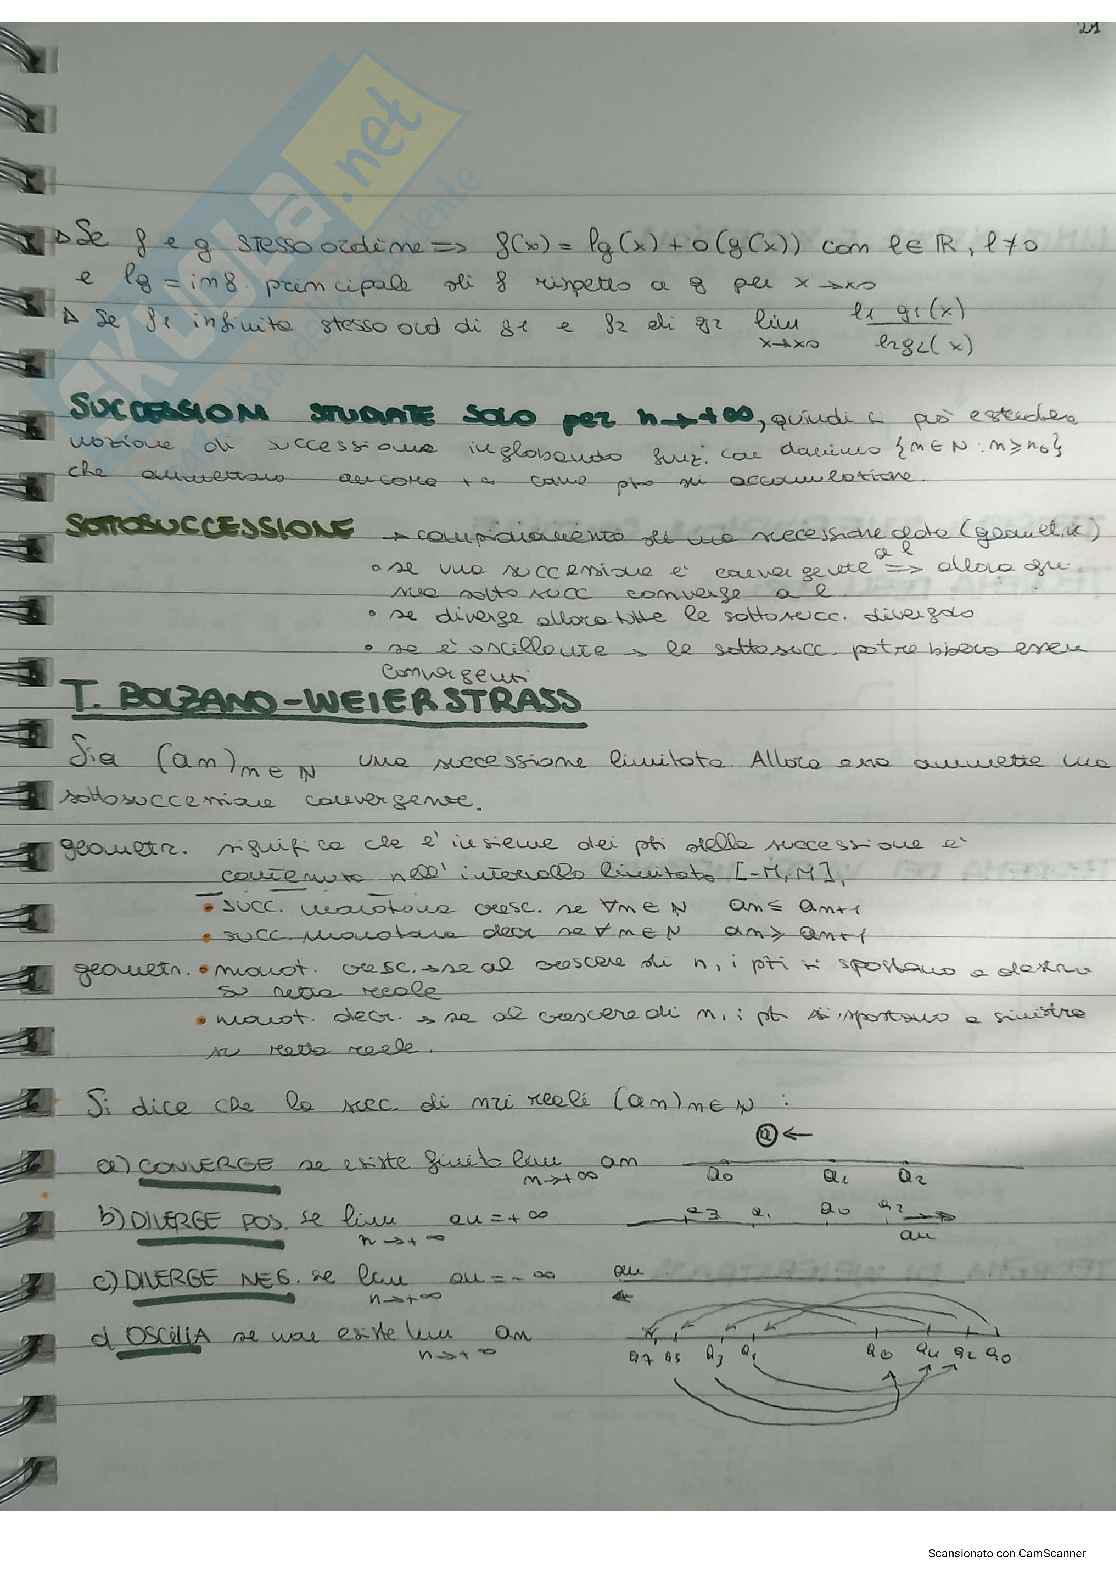 21
SKUOLA.net
▷ Se f e g stesso ordine => f(x) = lg(x) + o(g(x)) con l∈ℝ, l≠0
e lg = inf. principale di f rispetto a g per x→x0
▷ Se f1 infinito stesso ord di g1 e f2 di g2 lim x→x0 l1 g1(x) / l2 g2(x)
SUCCESSIONI STUDIATE SOLO per n→+∞, quindi si può estendere
nozione di successione inglobando funz. con dominio {n∈N : n≥n0}
che ammettano ancora +∞ come pto di accumulazione.
SOTTOSUCCESSIONE → campionamento di una successione data (geometric)
• se una successione è convergente a l => allora ogni
sua sottosucc converge a l
• se diverge allora tutte le sottosucc. divergono
• se è oscillante → le sottosucc. potrebbero essere
convergenti
T. BOLZANO-WEIERSTRASS
Sia (an)n∈N una successione limitata. Allora essa ammette una
sottosuccessione convergente.
geometr. significa che l'insieme dei pti della successione è
contenuto nell'intervallo limitato [-M, M].
• succ. monotona cresc. se ∀n∈N an ≤ an+1
• succ. monotona decr se ∀n∈N an ≥ an+1
geometr. • monot. cresc. → se al crescere di n, i pti si spostano a destra
su retta reale
• monot. decr. → se al crescere di n, i pti si spostano a sinistra
su retta reale.
Si dice che la succ. di nri reali (an)n∈N :
a) CONVERGE se esiste finito lim n→+∞ an a ← a0 a1 a2
b) DIVERGE POS. se lim n→+∞ an = +∞ a3 a1 a0 a2 an
c) DIVERGE NEG. se lim n→+∞ an = -∞ an ←
d) OSCILLA se non esiste lim n→+∞ an a7 a5 a3 a1 a6 a4 a2 a0
Scansionato con CamScanner